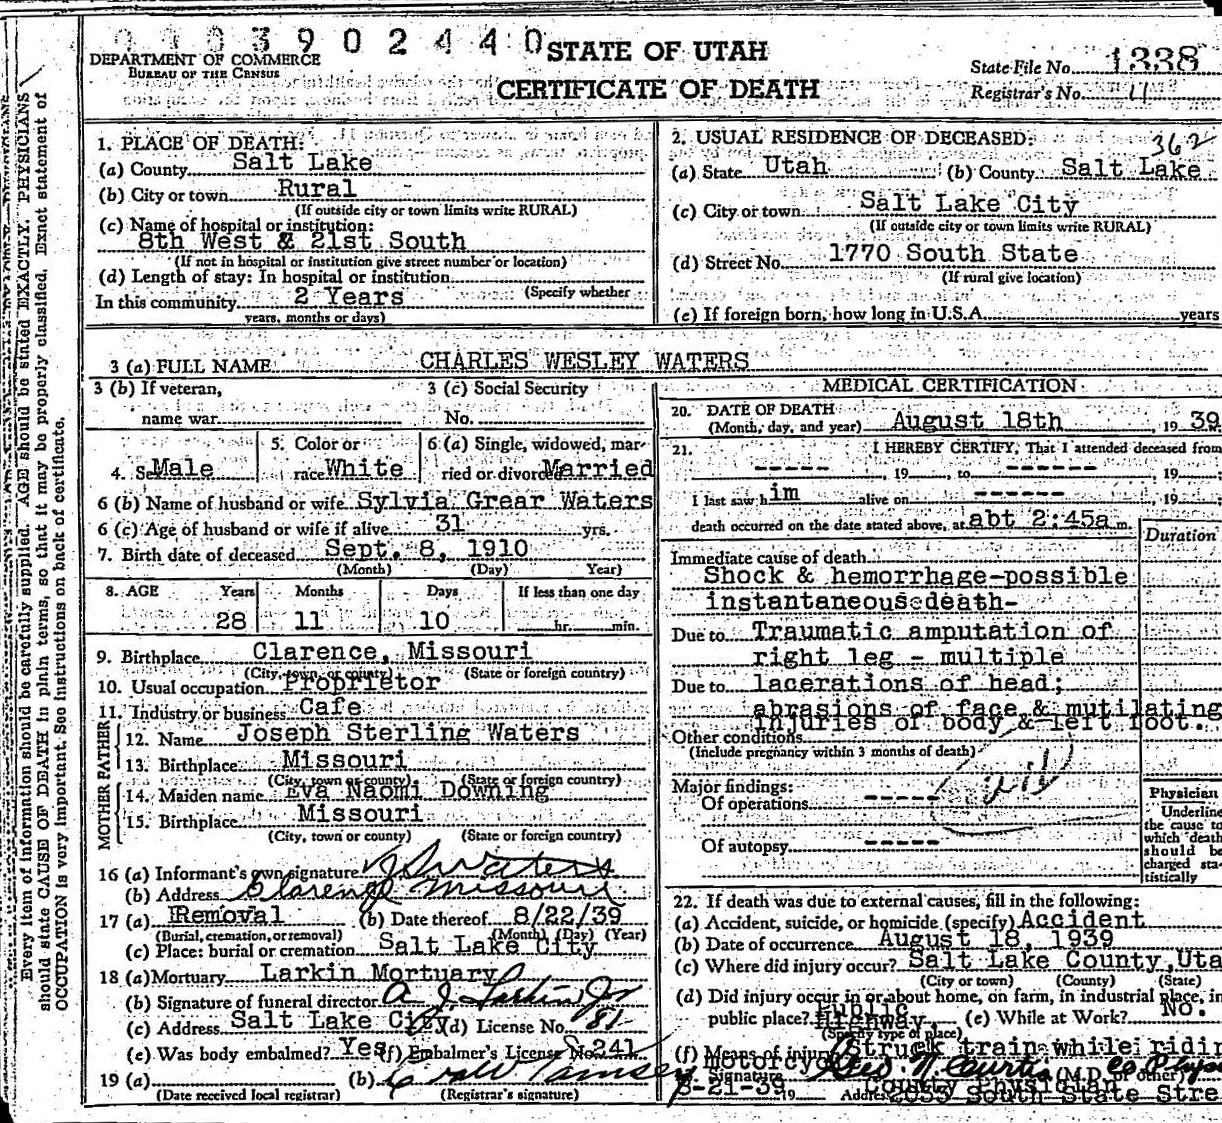 0 0 0 3 9 0 2 4 4 0
STATE OF UTAH
CERTIFICATE OF DEATH
DEPARTMENT OF COMMERCE
BUREAU OF THE CENSUS
State File No. 1338
Registrar's No. 11
Every item of information should be carefully supplied. AGE should be stated EXACTLY. PHYSICIANS
should state CAUSE OF DEATH in plain terms, so that it may be properly classified. Exact statement of
OCCUPATION is very important. See instructions on back of certificate.
1. PLACE OF DEATH:
(a) County Salt Lake
(b) City or town Rural
(If outside city or town limits write RURAL)
(c) Name of hospital or institution:
8th West & 21st South
(If not in hospital or institution give street number or location)
(d) Length of stay: In hospital or institution
(Specify whether
In this community 2 Years
years, months or days)
2. USUAL RESIDENCE OF DECEASED:
362
(a) State Utah (b) County Salt Lake
(c) City or town Salt Lake City
(If outside city or town limits write RURAL)
(d) Street No. 1770 South State
(If rural give location)
(e) If foreign born, how long in U.S.A. years
3 (a) FULL NAME CHARLES WESLEY WATERS
3 (b) If veteran, name war
3 (c) Social Security No.
4. Sex Male
5. Color or race White
6 (a) Single, widowed, married or divorced Married
6 (b) Name of husband or wife Sylvia Grear Waters
6 (c) Age of husband or wife if alive 31 yrs.
7. Birth date of deceased Sept. 8, 1910
(Month) (Day) Year)
8. AGE Years Months Days If less than one day
28 11 10 hr. min.
9. Birthplace Clarence, Missouri
(City, town or county) (State or foreign country)
10. Usual occupation Proprietor
11. Industry or business Cafe
FATHER
12. Name Joseph Sterling Waters
13. Birthplace Missouri
(City, town or county) (State or foreign country)
MOTHER
14. Maiden name Eva Naomi Downing
15. Birthplace Missouri
(City, town or county) (State or foreign country)
16 (a) Informant's own signature J S Waters
(b) Address Clarence Missouri
17 (a) Removal (b) Date thereof 8/22/39
(Burial, cremation, or removal) (Month) (Day) (Year)
(c) Place: burial or cremation Salt Lake City
18 (a) Mortuary Larkin Mortuary
(b) Signature of funeral director A J Larkin Jr
(c) Address Salt Lake City (d) License No. 81
(e) Was body embalmed? Yes (f) Embalmer's License No. 241
19 (a) (b)
(Date received local registrar) (Registrar's signature)
MEDICAL CERTIFICATION
20. DATE OF DEATH
(Month, day, and year) August 18th, 19 39
21. I HEREBY CERTIFY, That I attended deceased from
-----, 19 to ------, 19
I last saw h im alive on ------, 19
death occurred on the date stated above, at abt 2:45a m.
Duration
Immediate cause of death
Shock & hemorrhage-possible
instantaneous death-
Due to Traumatic amputation of
right leg - multiple
Due to lacerations of head;
abrasions of face & mutilating
injuries of body & left foot.
Other conditions
(Include pregnancy within 3 months of death)
Major findings:
Of operations -----
Of autopsy -----
Physician
Underline
the cause to
which death
should be
charged sta-
tistically
22. If death was due to external causes, fill in the following:
(a) Accident, suicide, or homicide (specify) Accident
(b) Date of occurrence August 18, 1939
(c) Where did injury occur? Salt Lake County, Uta
(City or town) (County) (State)
(d) Did injury occur in or about home, on farm, in industrial place, in
public place? Public Highway. (e) While at Work? No.
(Specify type of place)
(f) Means of injury Struck train while ridin
motorcyc
Signature Geo. N. Curtis Co Phys (M.D. or other)
County Physician
8-21-39 19 Address 2033 South State Stre